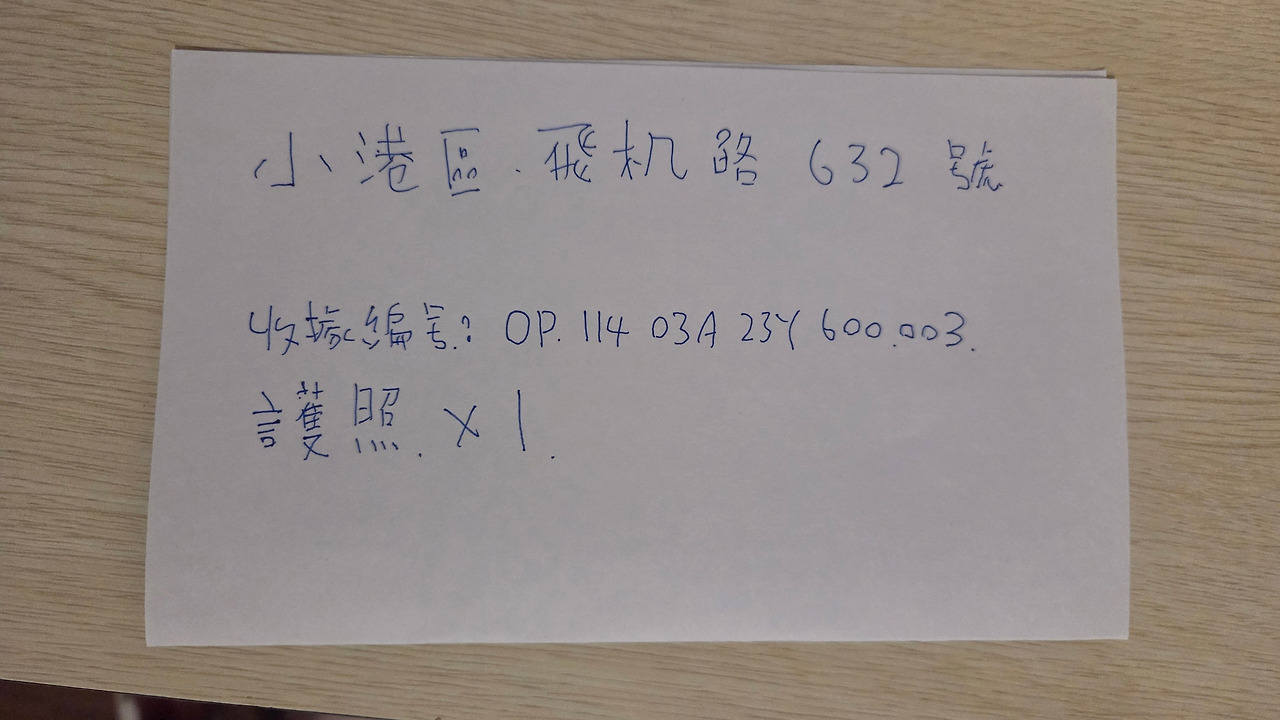 小港區.飛机路 632 號
收據編号: OP. 114 03A 23Y 600.003.
護照. x 1.